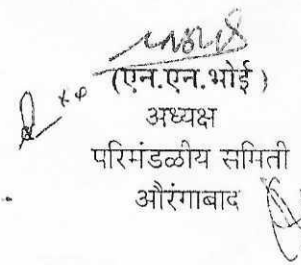 (एन.एन.भोई)
अध्यक्ष
परिमंडळीय समिती
औरंगाबाद